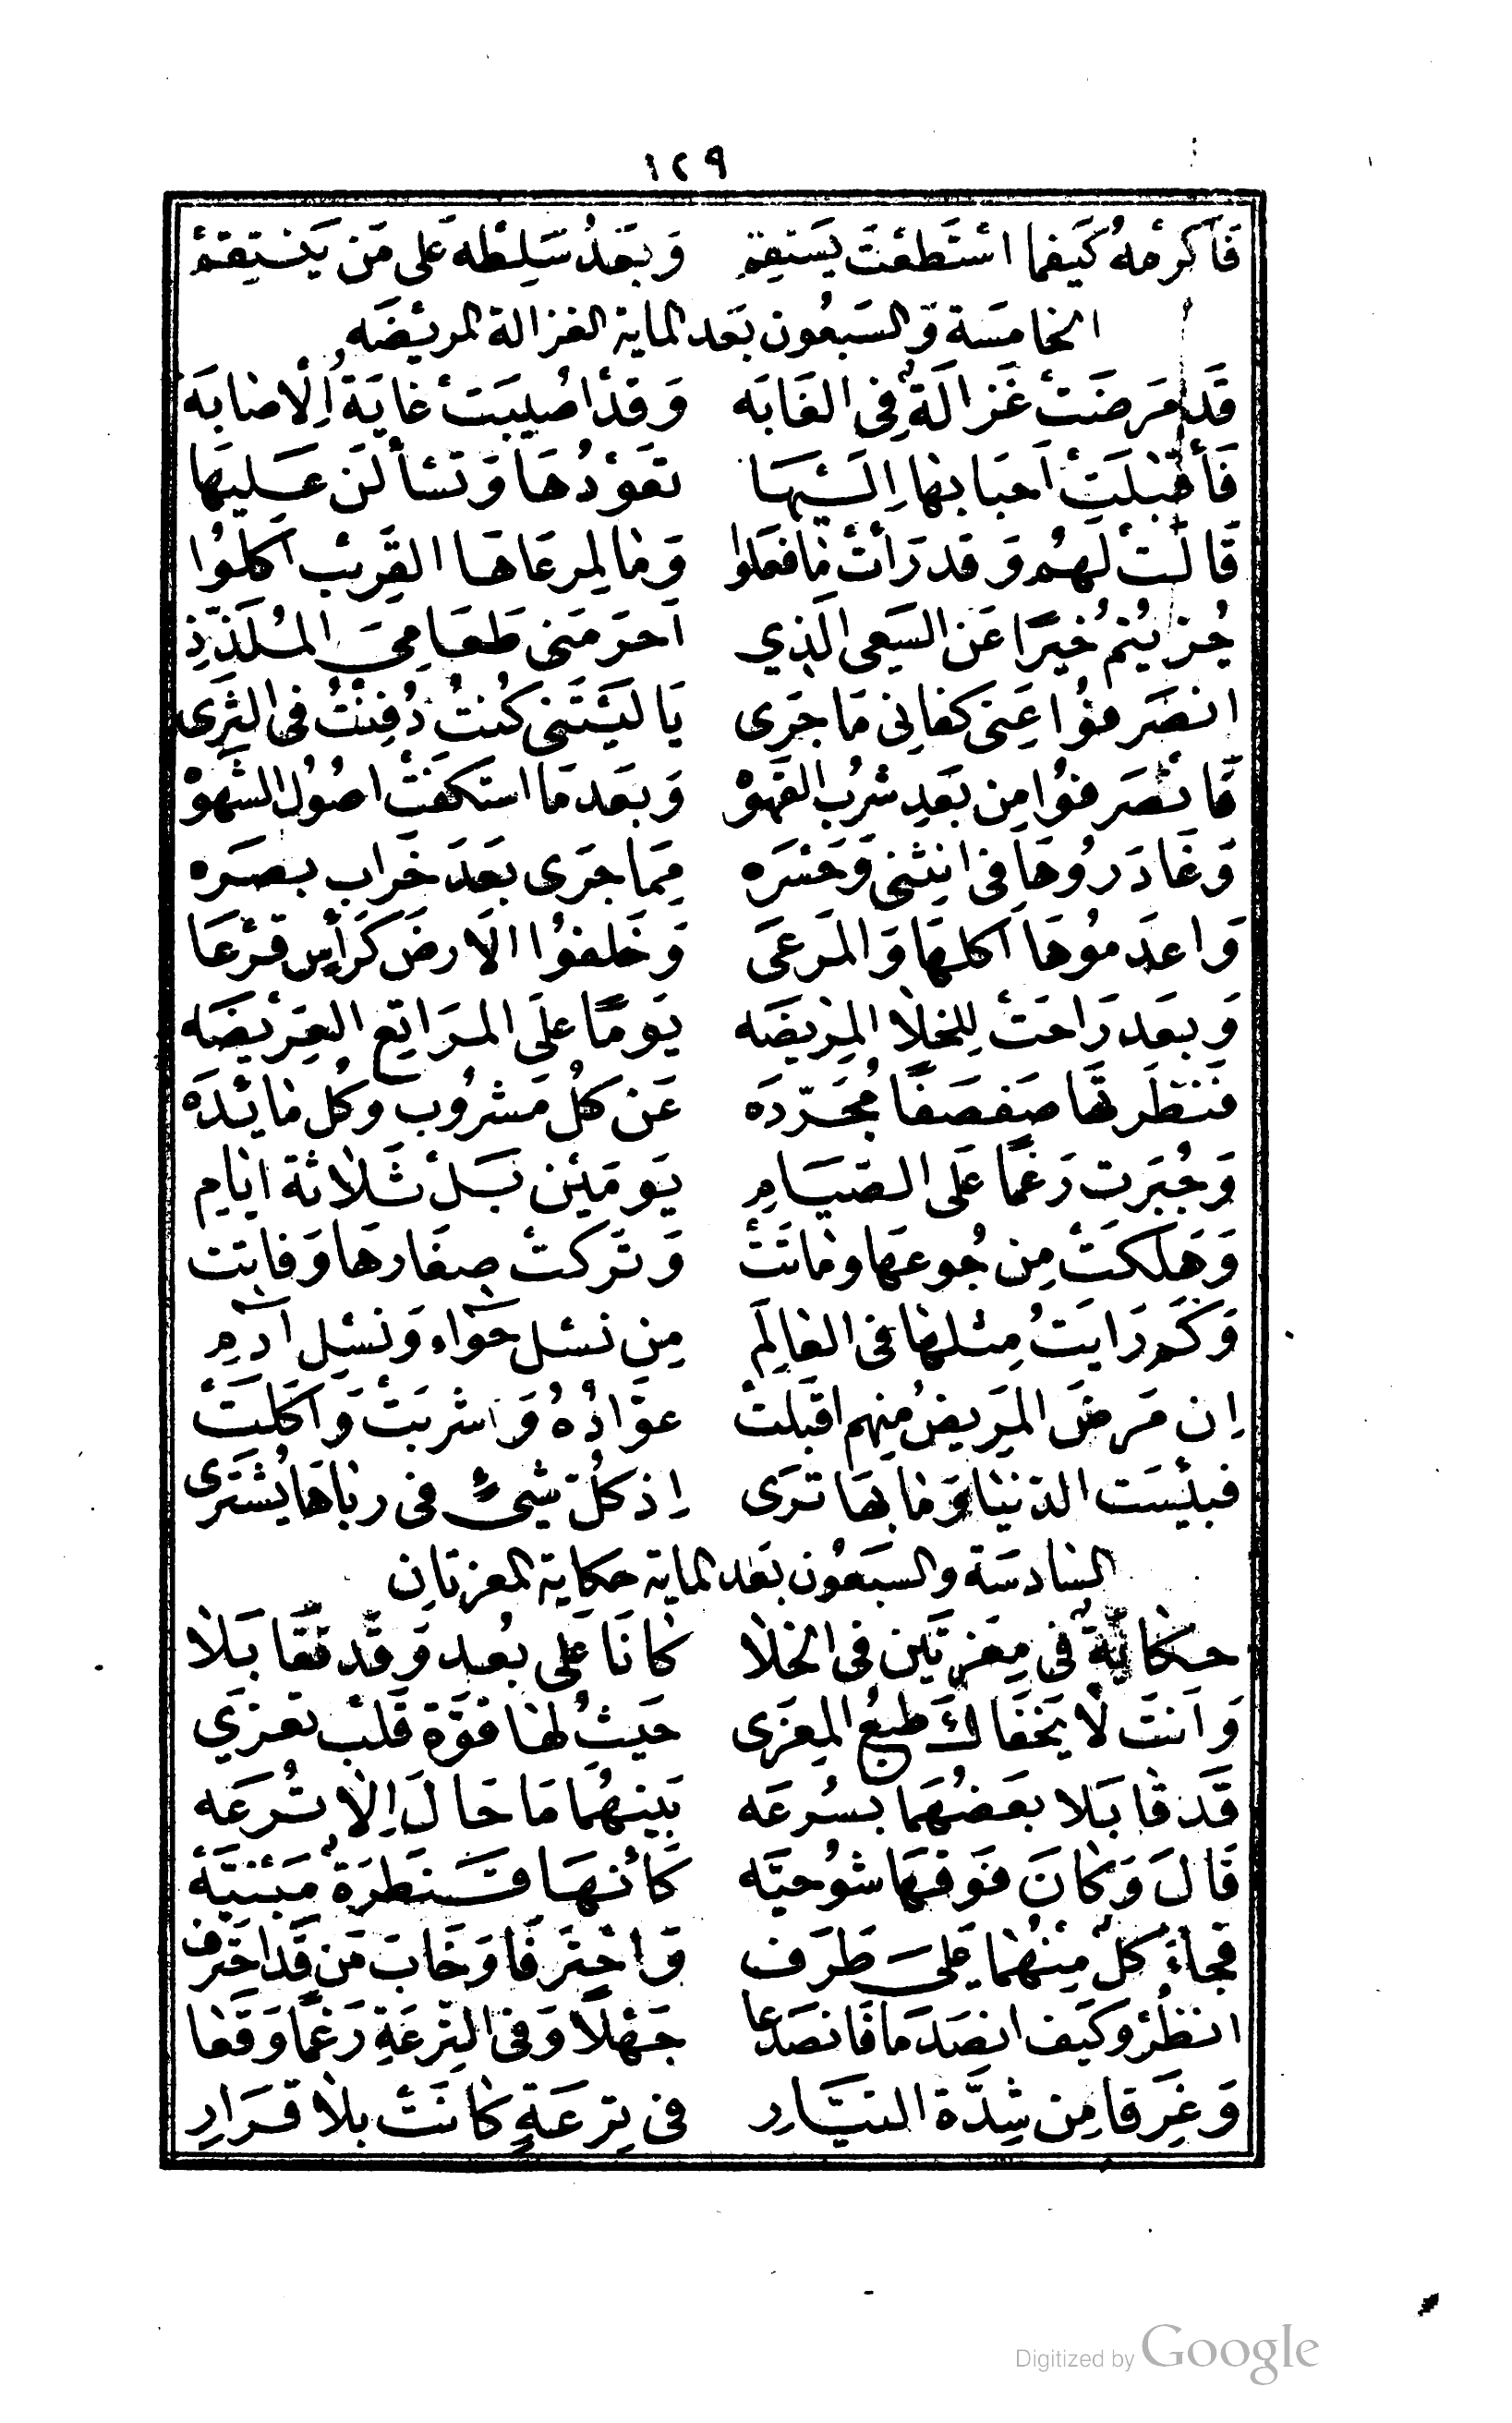 ١٢٩
فَأَكرِمْهُ كَيفما اسْتَطعْتَ يَستقِم وَبَعدُ سَلِطْه عَلى مَن يَنْتقِمْ
الخامسَة وَالسَبعُون بَعد الماية الغزالة المريضَه
قَد مَرضَتْ غَزالَةٌ فِى الغَابَه وَقدْ اصُيبَتْ غايَةَ اِلْاصابَه
فَأقبَلَتْ اَحبابها اِلَيْهَا تعَوْدُهَا وَتسْألَن عَليهَا
قَالتْ لَهُم وَقد رَأتْ مافعَلوا وَمَا لِمرعَاهَا القَرِيْب اكلوُا
جُزيْتُم خُيرًا عَن السَعى الَذِي اَحرَمَنى طَعَامِىَ المُلَذّذِ
انصَرفوُا عَنِى كفانِى مَا جَرَى يَا ليْتَنى كُنتُ دُفِنْتُ فى الثَرى
فَانصَرفوُا مِن بَعدِ شرُب القَهوْ وَبَعد مَا استكفَتْ اصُوُل الشَهوْ
وَغَادَروُهَا فى انِثنى وَحَسْرَه مِمَا جَرَى بَعدَ خَراب بصَره
وَاعدَموُهَا اَكلهَا وَالمَرعَى وَخَلفوُا الَارضَ كَرَأسٍ قَرْعَا
وَبعَد رَاحَتْ لِلخلا المرِيضَه يَومًا عَلَى المرَاتِع العَرِيْضَه
فَنَظَرتهَا صَفصَفًا مُجَرّدَه عَن كُلُ مَشرُوب وَكُل مَائدَه
وَجُبَرت رَغمًا عَلى الصّيَامِ يَومَيْن بَلْ ثَلاثة ايَامِ
وَهَلكَتْ مِن جُوعهَا وماتَتْ وَتَركتْ صِغَارهَا وَفاتت
وَكَم رَايَتُ مِثلهَا فى العَالَمِ مِن نسْل حَوّاء وَنسْلِ آدَمِ
اِن مَرضَ المَريض مِنهم اقبَلتْ عوّادُهُ وَاشربَتْ وَاكَلَتْ
فبئسَت الدّنيَا وَمَا بهَا تَرَى اِذ كلُ شئ فى رباهَا يُشْتَرى
السَادسَة والسَبعُون بَعد الماية حكاية المعزتان
حكايَةٌ فى مِعزتَين فى الخلا كانَا عَلى بعُد وَقد تقَا بَلا
وَاَنتَ لَا يَخفَاكَ طبعُ المِعزَى حَيثُ لهَا قوَّة قَلبْ تعزِي
قَد قابَلا بَعَضهُمَا بسُرعَه بَينهُمَا مَا حَالَ اِلا ترُعَه
قَالَ وَكانَ فَوقهَا شوُحيَّه كَأنهَا قنطَرَةٌ مَبْنيَّهْ
فجاءَ كلٌ مِنْهُما عَلىَ طَرَف وَاحْتَرفَا وَخَابَ مَن قَد احَترف
انظُرْ وَكَيف انصَدَما فَانصَدعا جَهْلًا وَفى التِرعَةِ رَغمًا وَقعَا
وَغَرِقا مِن شِدَّة التيّارِ فى تِرعَةٍ كانَتْ بلا قَرَارِ
Digitized by Google